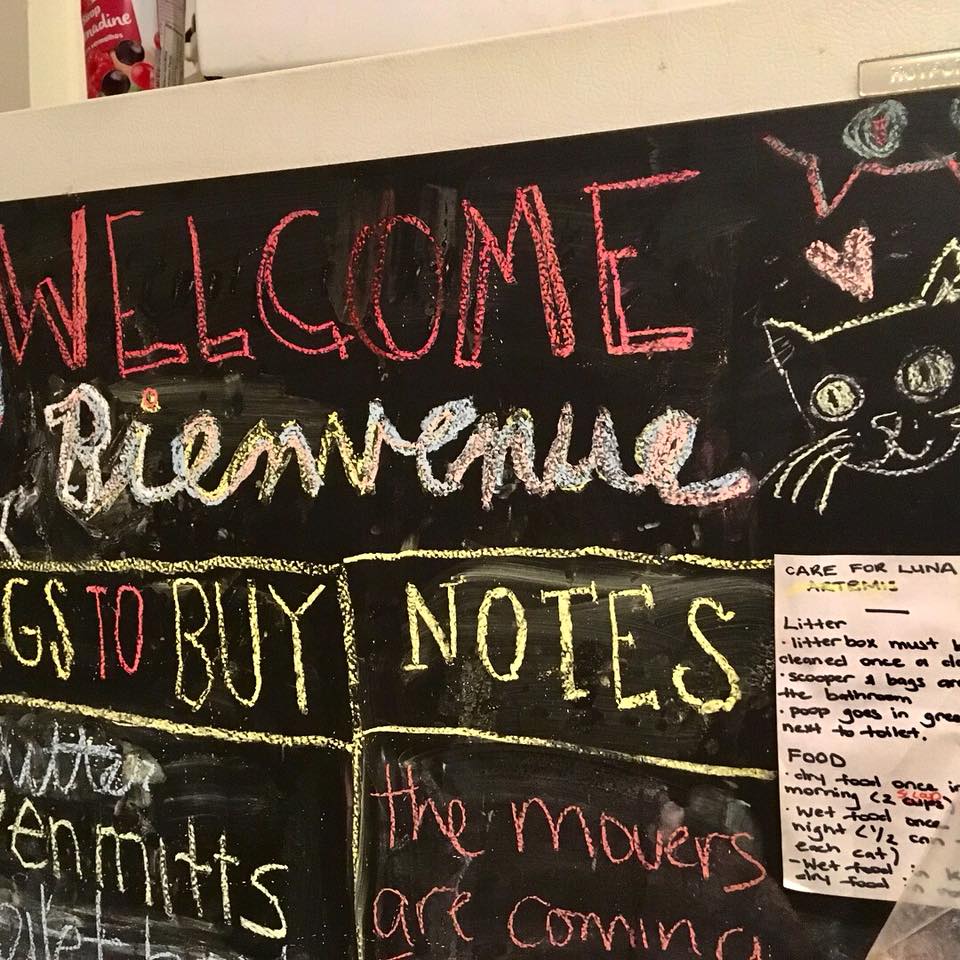 WELCOME
Bienvenue
TO BUY
NOTES
the movers
are coming
CARE FOR LUNA
ARTEMIS
Litter
• litterbox must
cleaned once a
• scooper & bags
the bathroom
• poop goes in
next to toilet.
FOOD
• dry food once in
morning (2 scoops)
• Wet food once
night (1/2 can
each cat)
- Wet food
dry food